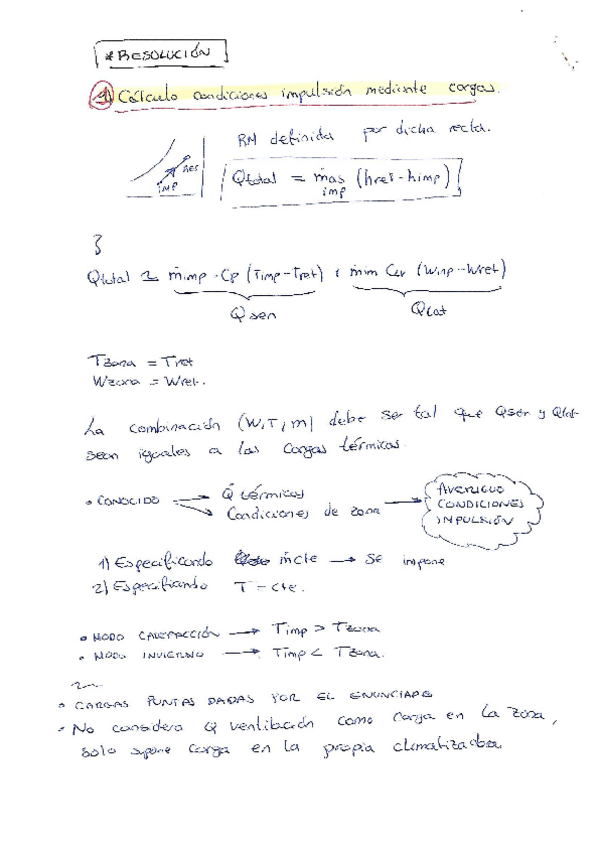 * RESOLUCIÓN
1) Cálculo condiciones impulsión mediante cargas.
RM definida por dicha recta.
RES
IMP
Qtotal = ṁas (hret - himp)
imp
3
Qtotal ≃ ṁimp · Cp (Timp - Tret) + ṁim Cw (Winp - Wret)
Qsen
Qlat
Tzona = Tret
Wzona = Wret.
La combinación (W, T, ṁ) debe ser tal que Qsen y Qlat
sean iguales a las cargas térmicas.
• CONOCIDO
Q̇ térmicas
Condiciones de zona
AVERIGUO
CONDICIONES
IMPULSIÓN
1) Especificando ṁcte → Se impone
2) Especificando T = cte.
• MODO CALEFACCIÓN → Timp > Tzona
• MODO INVIERNO → Timp < Tzona.
• CARGAS PUNTAS DADAS POR EL ENUNCIADO
- No considera Q ventilación como carga en la zona,
solo supone carga en la propia climatizadora.